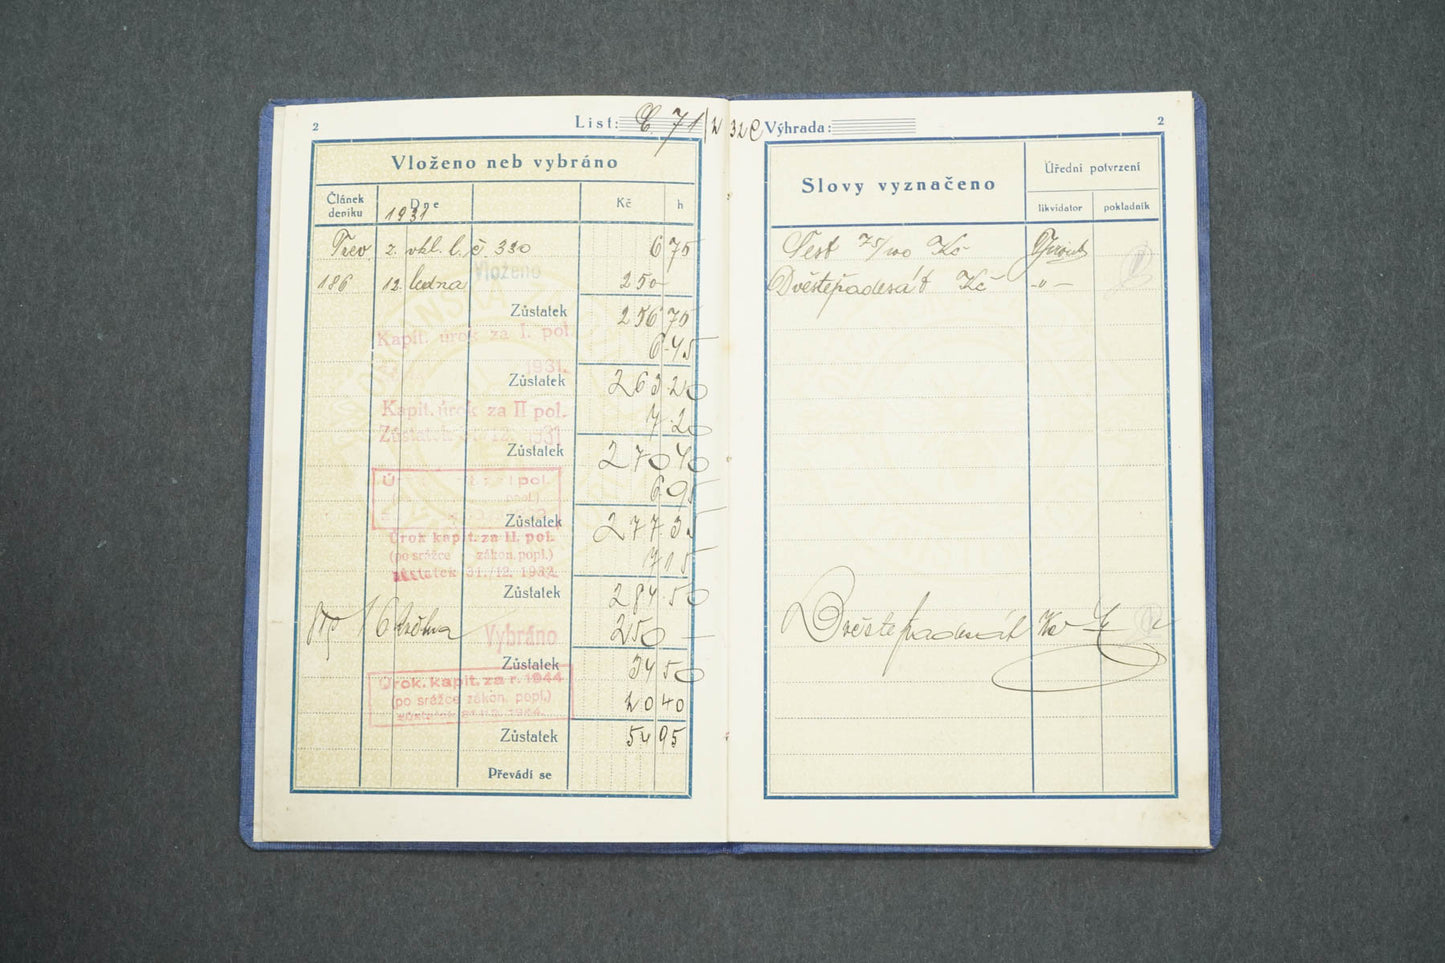 2
List: 71
Vloženo neb vybráno
Článek deníku
Dne
1931
Kč
h
2. vkl. l. č 330
6 75
Vloženo
186 12. ledna
250 -
Zůstatek 256 75
Kapit. úrok za I. pol. 1931.
6 45
Zůstatek 263 20
Kapit. úrok za II pol.
7 20
Zůstatek 31. 12. 1931
Zůstatek 270 40
I pol.
6 95
Zůstatek 277 35
Úrok kapit. za II. pol.
(po srážce zákon. popl.)
7 15
zůstatek 31./12. 1932
Zůstatek 284 50
Vybráno
250 -
Zůstatek 34 50
Úrok. kapit. za r. 1944
(po srážce zákon. popl.)
20 40
Zůstatek 54 95
Převádí se
Výhrada:
2
Slovy vyznačeno
Úřední potvrzení
likvidátor
pokladník
Šest 75/100 Kč
Dvěstěpadesát Kč -"-
Dvěstepadesát Kč